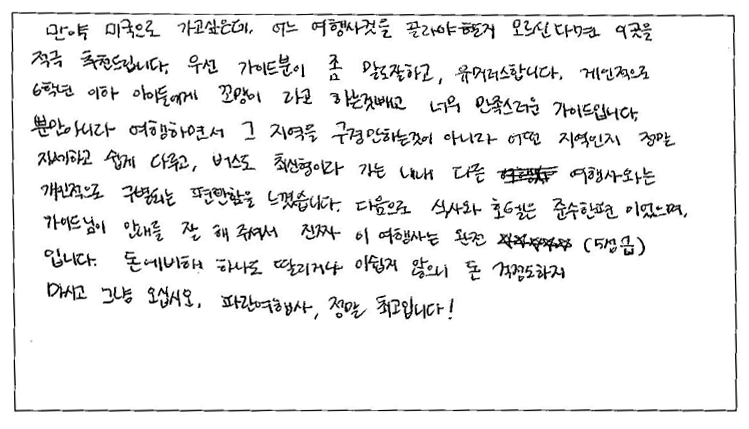 만약 미국으로 가고싶은데, 어느 여행사것을 골라야 할지 모르신다면 이곳을
적극 추천드립니다. 우선 가이드분이 좀 말도잘하고, 유머러스합니다. 개인적으로
6학년 이하 아이들에게 꼬맹이 라고 하는것빼고 너무 만족스러운 가이드입니다.
뿐만아니라 여행하면서 그 지역을 구경만하는것이 아니라 어떤 지역인지 정말
자세하고 쉽게 다루고, 버스도 최신형이라 가는 내내 다른 여행사와는
개인적으로 구별되는 편안함을 느꼈습니다. 다음으로 식사와 호텔은 준수한편 이었으며,
가이드님이 안내를 잘 해 주셔서 진짜 이 여행사는 완전 (5성급)
입니다. 돈에비해 하나도 딸리거나 아쉽지 않으니 돈 걱정도하지
마시고 그냥 오십시오. 파란여행사, 정말 최고입니다!